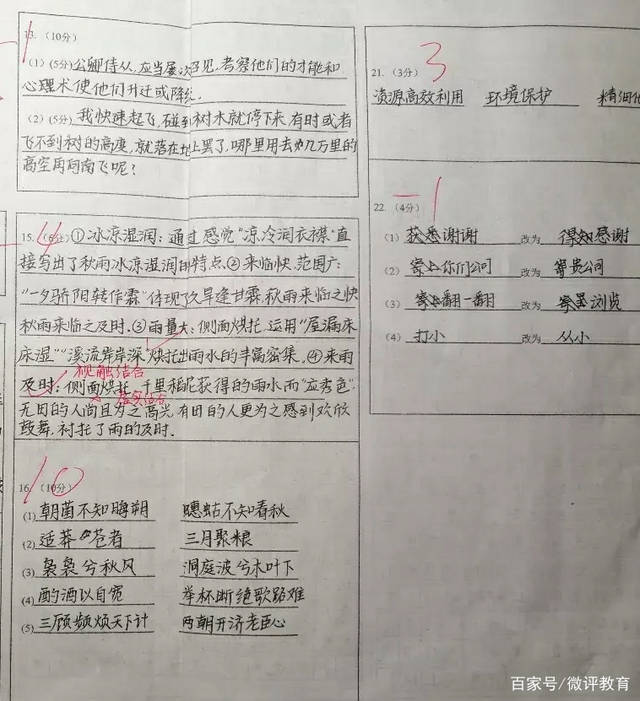 13. (10分)
(1)(5分)公卿侍从,应当屡次召见,考察他们的才能和
心理术使他们升迁或降级.
(2)(5分)我快速起飞,碰到树木就停下来,有时或者
飞不到树的高度,就落在地上罢了,哪里用去九万里的
高空再向南飞呢?
15. (6分)①冰凉湿润:通过感觉“凉冷润衣襟”直
接写出了秋雨冰凉湿润的特点.②来临快.范围广:
“一夕骄阳转作霖”体现了久旱逢甘霖,秋雨来临之快
秋雨来临之及时.③雨量大:侧面烘托.运用“屋漏床
床湿”“溪流岸岸深”烘托出雨水的丰富密集.④来雨
视触结合
及时:侧面烘托.千里稻花获得的雨水而“应秀色”.
虚实结合
无田的人尚且为之高兴,有田的人更为之感到欢欣
鼓舞,衬托了雨的及时.
4
16. (10分)
10
(1)朝菌不知晦朔 蟪蛄不知春秋
(2)适莽苍者 三月聚粮
(3)袅袅兮秋风 洞庭波兮木叶下
(4)酌酒以自宽 举杯断绝歌路难
(5)三顾频烦天下计 两朝开济老臣心
21. (3分)
3
资源高效利用 环境保护 精细化
22 (4分)
-1
(1)获悉谢谢 改为 得知感谢
(2)寄上你们公司 改为 寄贵公司
(3)翻一翻 改为 浏览
(4)打小 改为 从小
百家号/微评教育